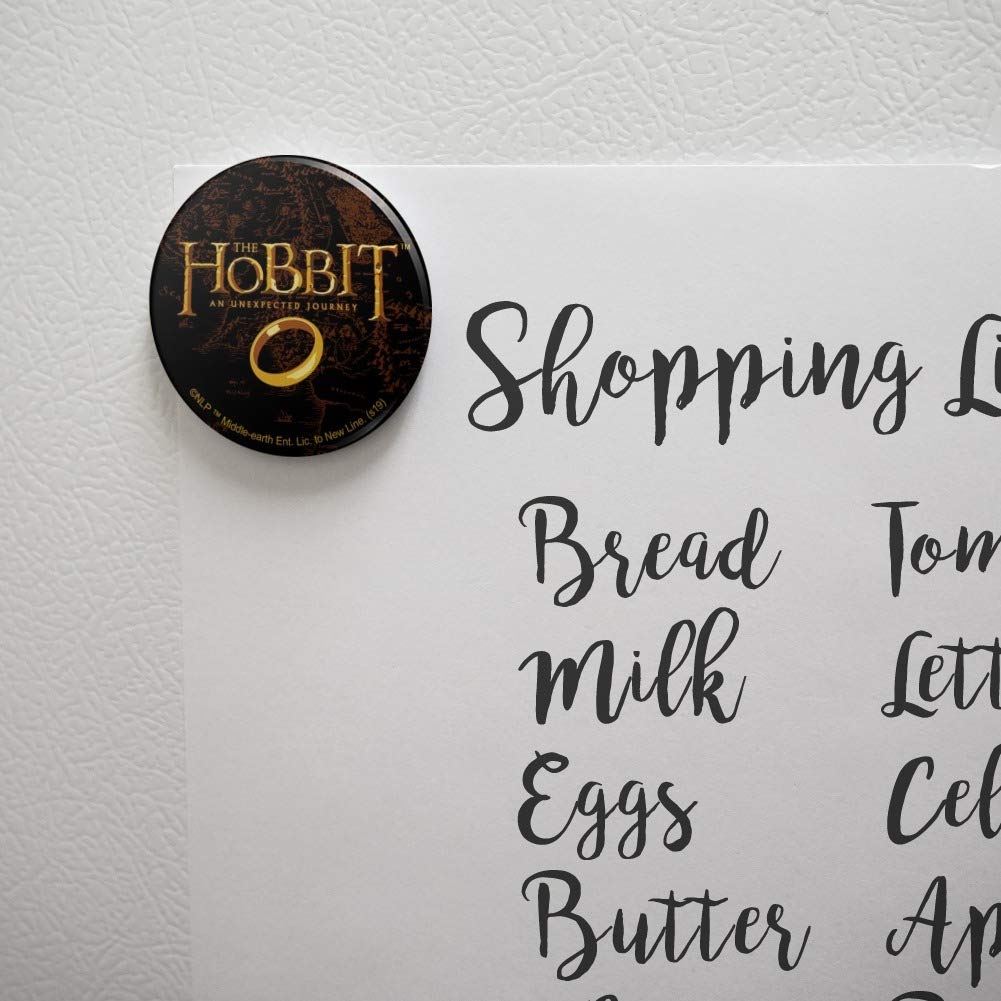 THE
HOBBIT™
AN UNEXPECTED JOURNEY
©NLP ™ Middle-earth Ent. Lic. to New Line. (s19)
Shopping Li
Bread Tom
Milk Lett
Eggs Cel
Butter Ap